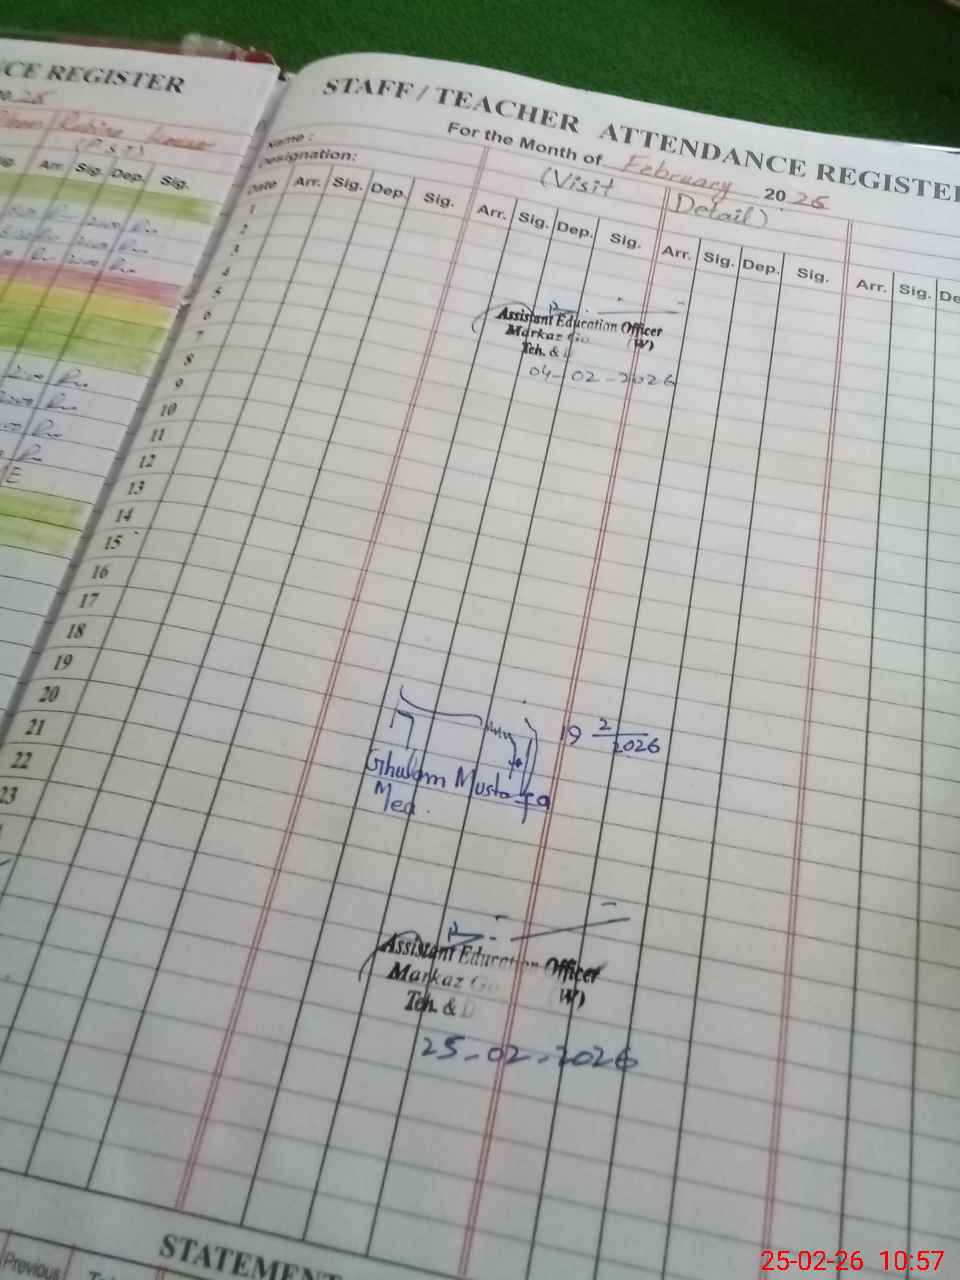 CE REGISTER
25
Rubina Kousar
(P.S.T)
Arr. Sig. Dep. Sig.
STAFF / TEACHER ATTENDANCE REGISTER
For the Month of February 2025
Name :
Designation:
(Visit Detail)
Date Arr. Sig. Dep. Sig. Arr. Sig. Dep. Sig. Arr. Sig. Dep. Sig. Arr. Sig. De
1
2
3
4
5
6
7
8
9
10
11
12
13
14
15
16
17
18
19
20
21
22
23
Assistant Education Officer
Markaz Go (W)
Teh. &
04-02-2026
19 2/2026
Ghulam Mustafa
Mea.
Assistant Education Officer
Markaz Go (W)
Teh. & D
25-02-2026
STATEMENT
Previous
25-02-26 10:57